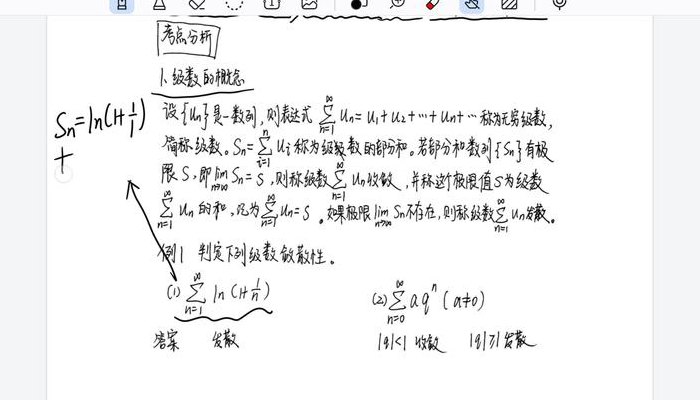 考点分析
1. 级数的概念
Sn=ln(1+1/1)
+
设{Un}是一数列, 则表达式 ∑_{n=1}^{∞} Un=U1+U2+…+Un+… 称为无穷级数,
简称级数。Sn=∑_{i=1}^{n} Ui 称为级数的部分和。若部分和数列{Sn}有极
限S, 即 lim_{n→∞} Sn=S, 则称级数 ∑_{n=1}^{∞} Un 收敛, 并称这个极限值S为级数
∑_{n=1}^{∞} Un 的和, 记为 ∑_{n=1}^{∞} Un=S。如果极限 lim_{n→∞} Sn 不存在, 则称级数 ∑_{n=1}^{∞} Un 发散。
例1 判定下列级数敛散性。
(1) ∑_{n=1}^{∞} ln(1+1/n) (2) ∑_{n=0}^{∞} aq^n (a≠0)
答案 发散 |q|<1 收敛 |q|≥1 发散